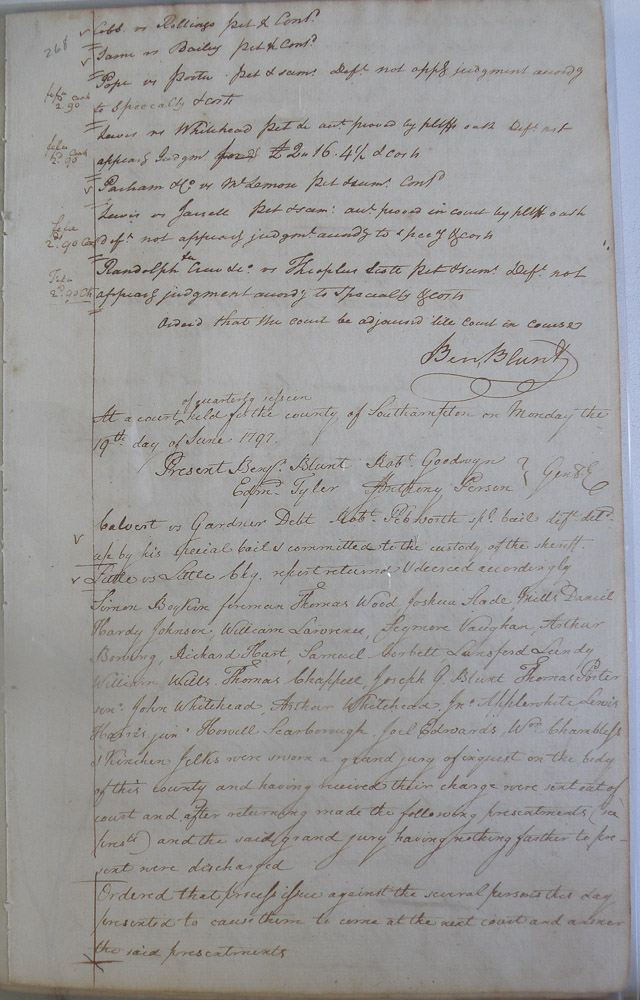 268
Cobb vs Rollings Pet & Cont.d
Same vs Bailey Pet & Cont.d
Pope vs Porter Pet & sum.s Def.t not appg judgment accordg
to Specealty & costs
Lewis vs Whitehead Pet & acc.t proved by pltffs oath Def.t not
appearg Judgm.t for £2.16.4½ & costs
Parham & Co vs McLemore Pet & sum.s Cont.d
Lewis vs Jarrell Pet & sum.s acc.t proved in court by pltffs oath
def.t not appearg judgm.t accordg to specy & costs
Randolph & Co vs Theoplus Scott Pet & sum.s Def.t not
appearg judgment accordg to Specialty & costs
Orderd that the court be adjourned till court in course
Ben. Blunt
of quarterly session
At a court held for the county of Southampton on Monday the
19th day of June 1797.
Present Benj.n Blunt Rob.t Goodwyn
Edm.d Tyler Anthony Person Gent
Calvert vs Gardner Debt Rob.t Pebworth spl bail def.t
up by his special bail & committed to the custody of the sheriff.
Little vs Little Chy. report returned & decreed accordingly
Simon Boykin foreman Thomas Wood Joshua Slade, Mills Daniel
Hardy Johnson, William Lawrence, Seymore Vaughan, Arthur
Bowing, Richard Hart, Samuel Corbett Lunsford Lundy
William Wills, Thomas Chappell, Joseph G. Blunt Thomas Porter
sen.r John Whitehead, Arthur Whitehead, Jn.o Applewhite Lewis
Harris jun.r Howell Scarborough, Joel Edwards, W.m Chambless
& Kinchen Jelks were sworn a grand jury of inquest on the body
of this county and having received their charge were sent out of
court and after returning made the following presentments
and the said grand jury having nothing farther to pre-
sent were discharged
Ordered that process issue against the several persons this day
presented to cause them to come at the next court and answer
the said presentments